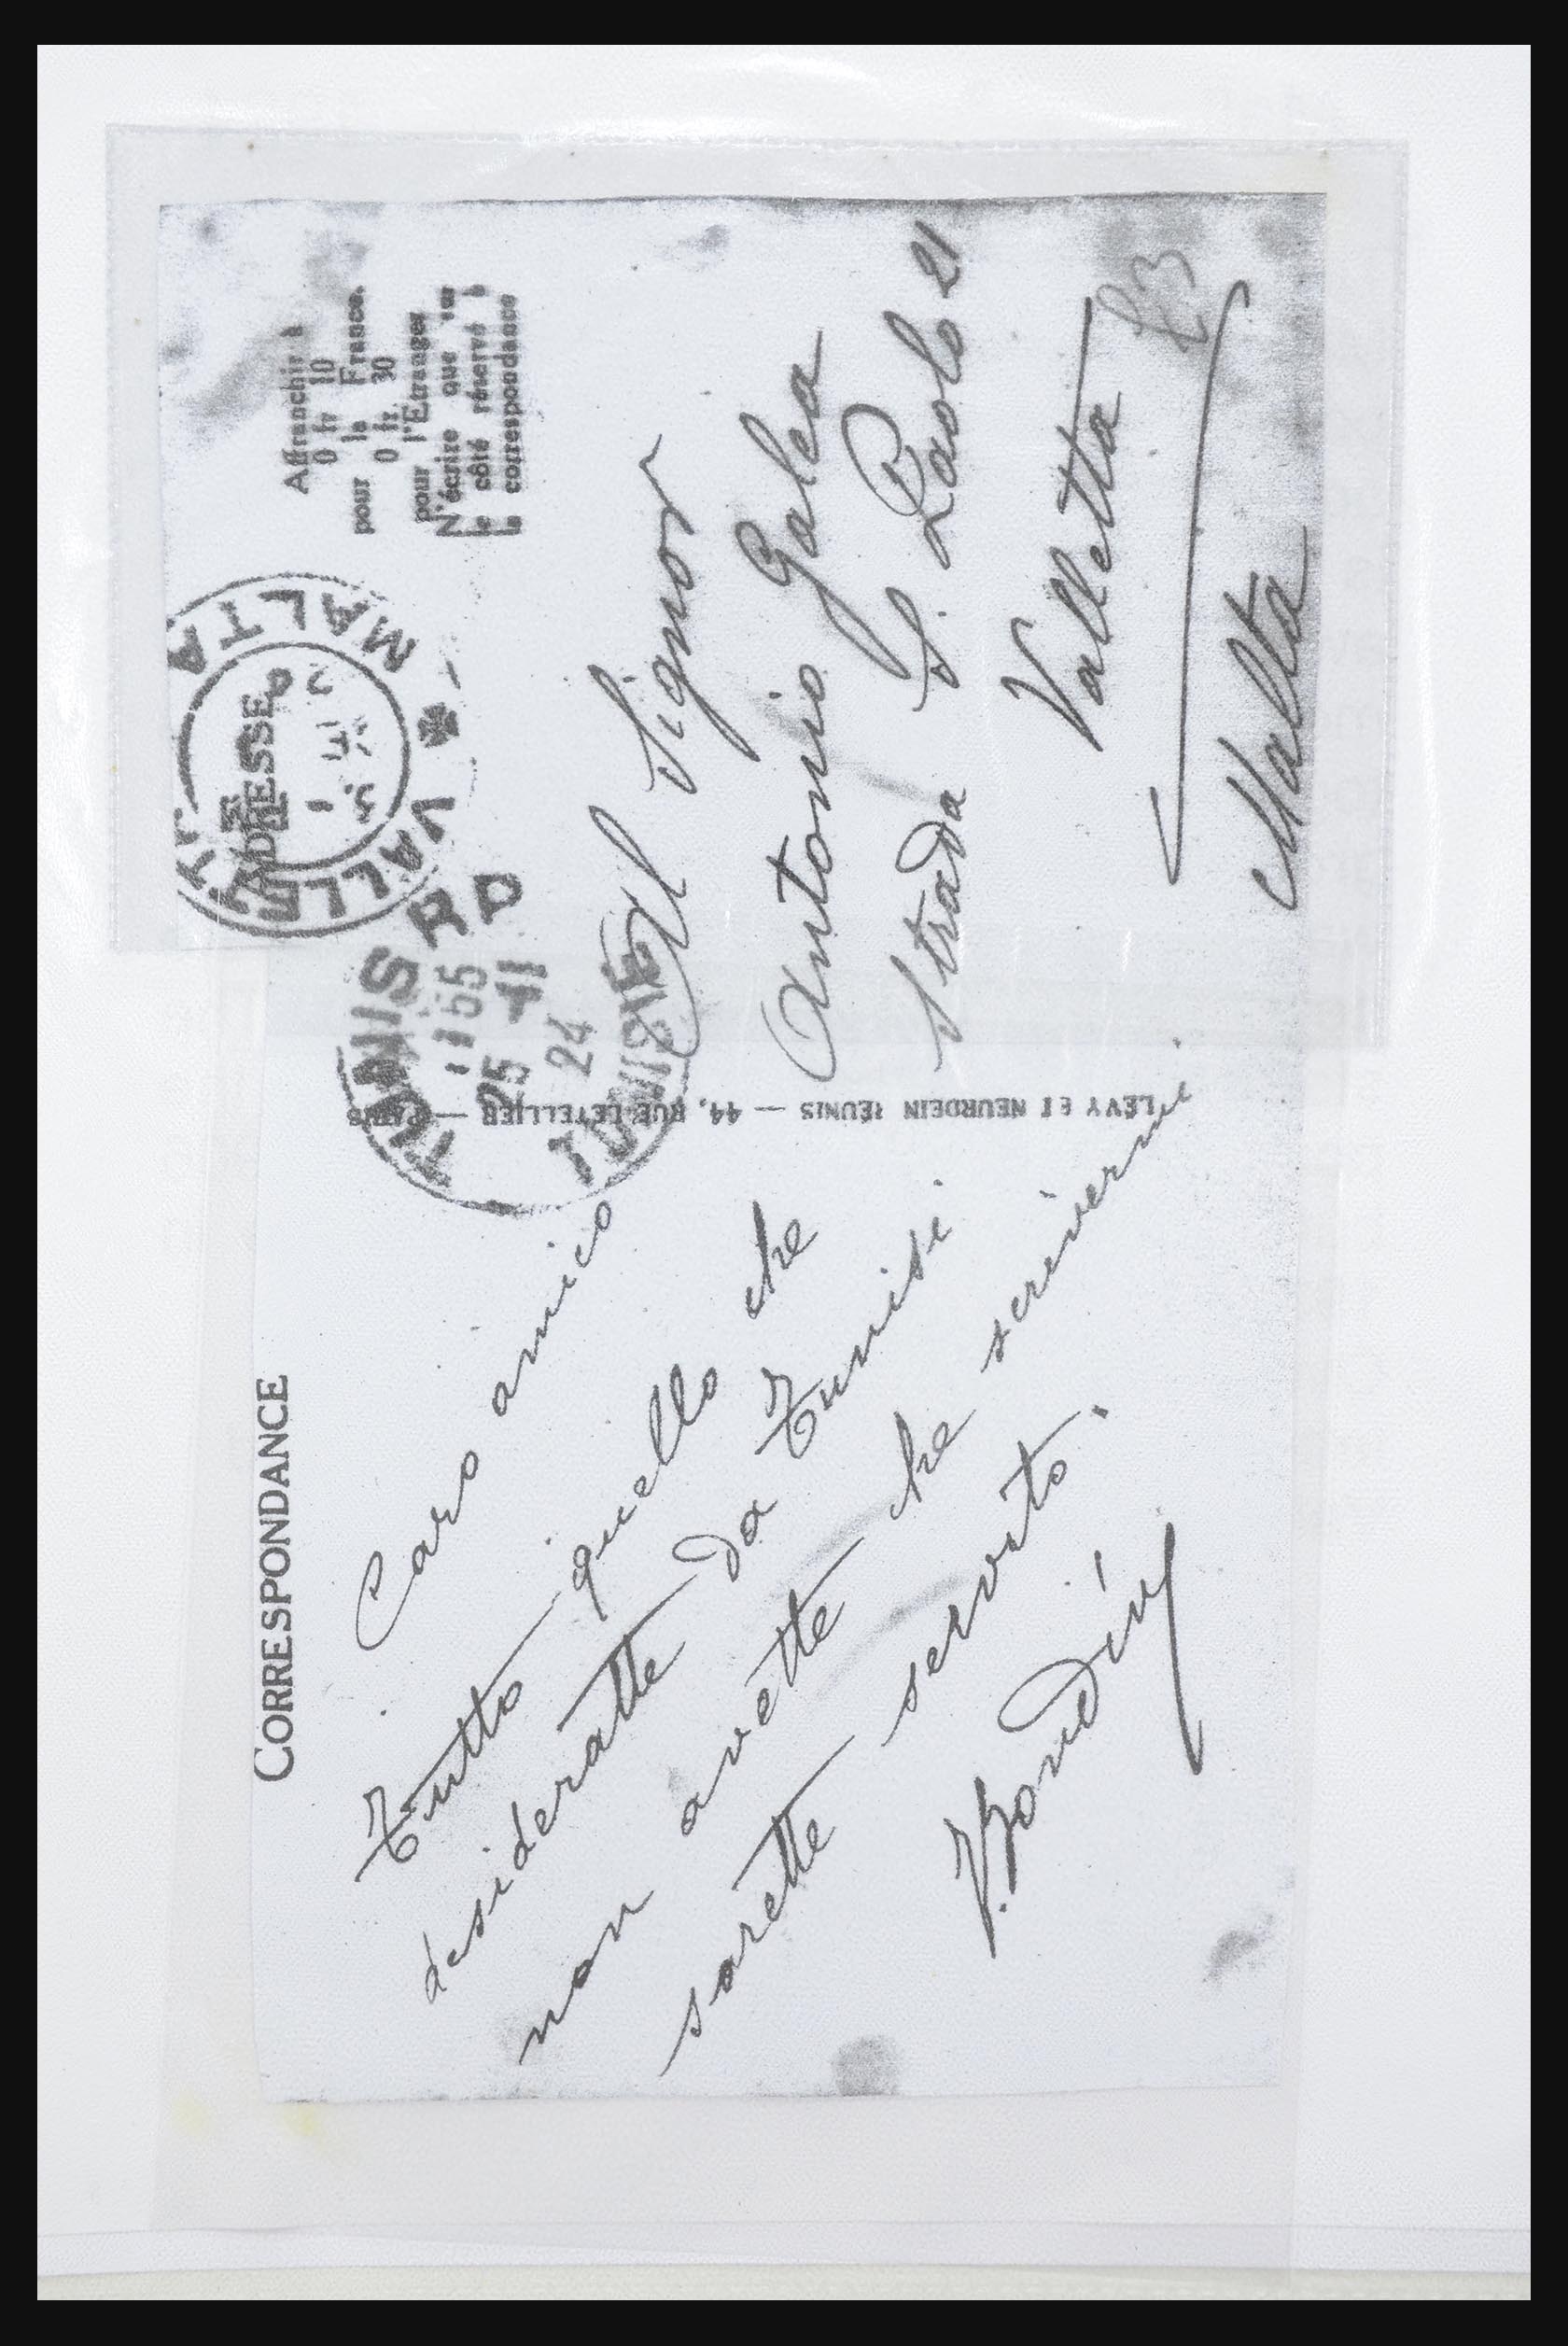 CORRESPONDANCE
Caro amico
Tutto quello che
desideratte da Tunisi
non avette che scrivermi
sarette servito.
V. Bondin
LÉVY ET NEURDEIN RÉUNIS — 44, RUE LETELLIER — PARIS
TUNIS RP
1155
25 - II
24
TUNISIE
VALLETTA MALTA
ADRESSE
Affranchir à
0 fr 10
pour la France.
0 fr. 30
pour l'Etranger
N'écrire que sur
le côté réservé à
la correspondance
Al Signor
Antonio Galea
Strada S. Paolo 21
Valletta
Malta